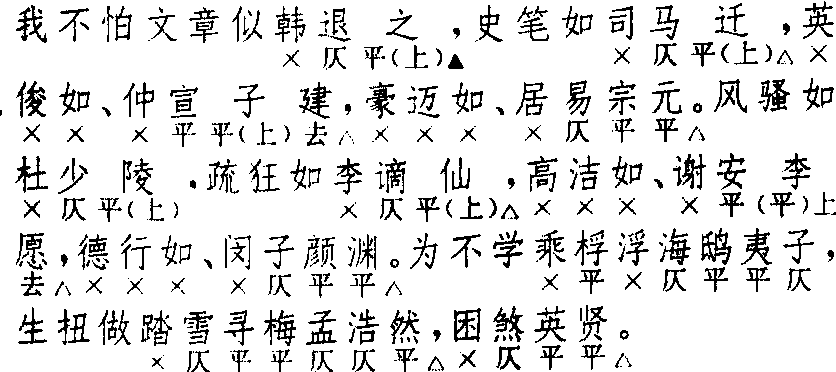 我不怕文章似韩退之，史笔如司马迁，英
× 仄 平(上)▲ × 仄 平(上)△ ×
俊如、仲宣子建，豪迈如、居易宗元。风骚如
× × × 平 平(上) 去 △ × × × × 仄 平 平 △
杜少陵．疏狂如李谪仙，高洁如、谢安李
× 仄 平(上) × 仄 平(上)△ × × × × 平 (平) 上
愿，德行如、闵子颜渊。为不学乘桴浮海鸱夷子，
去 △ × × × × 仄 平 平 △ × 平 × 仄 平 平 仄
生扭做踏雪寻梅孟浩然，困煞英贤。
× 仄 平 平 仄 仄 平 △ × 仄 平 平 △